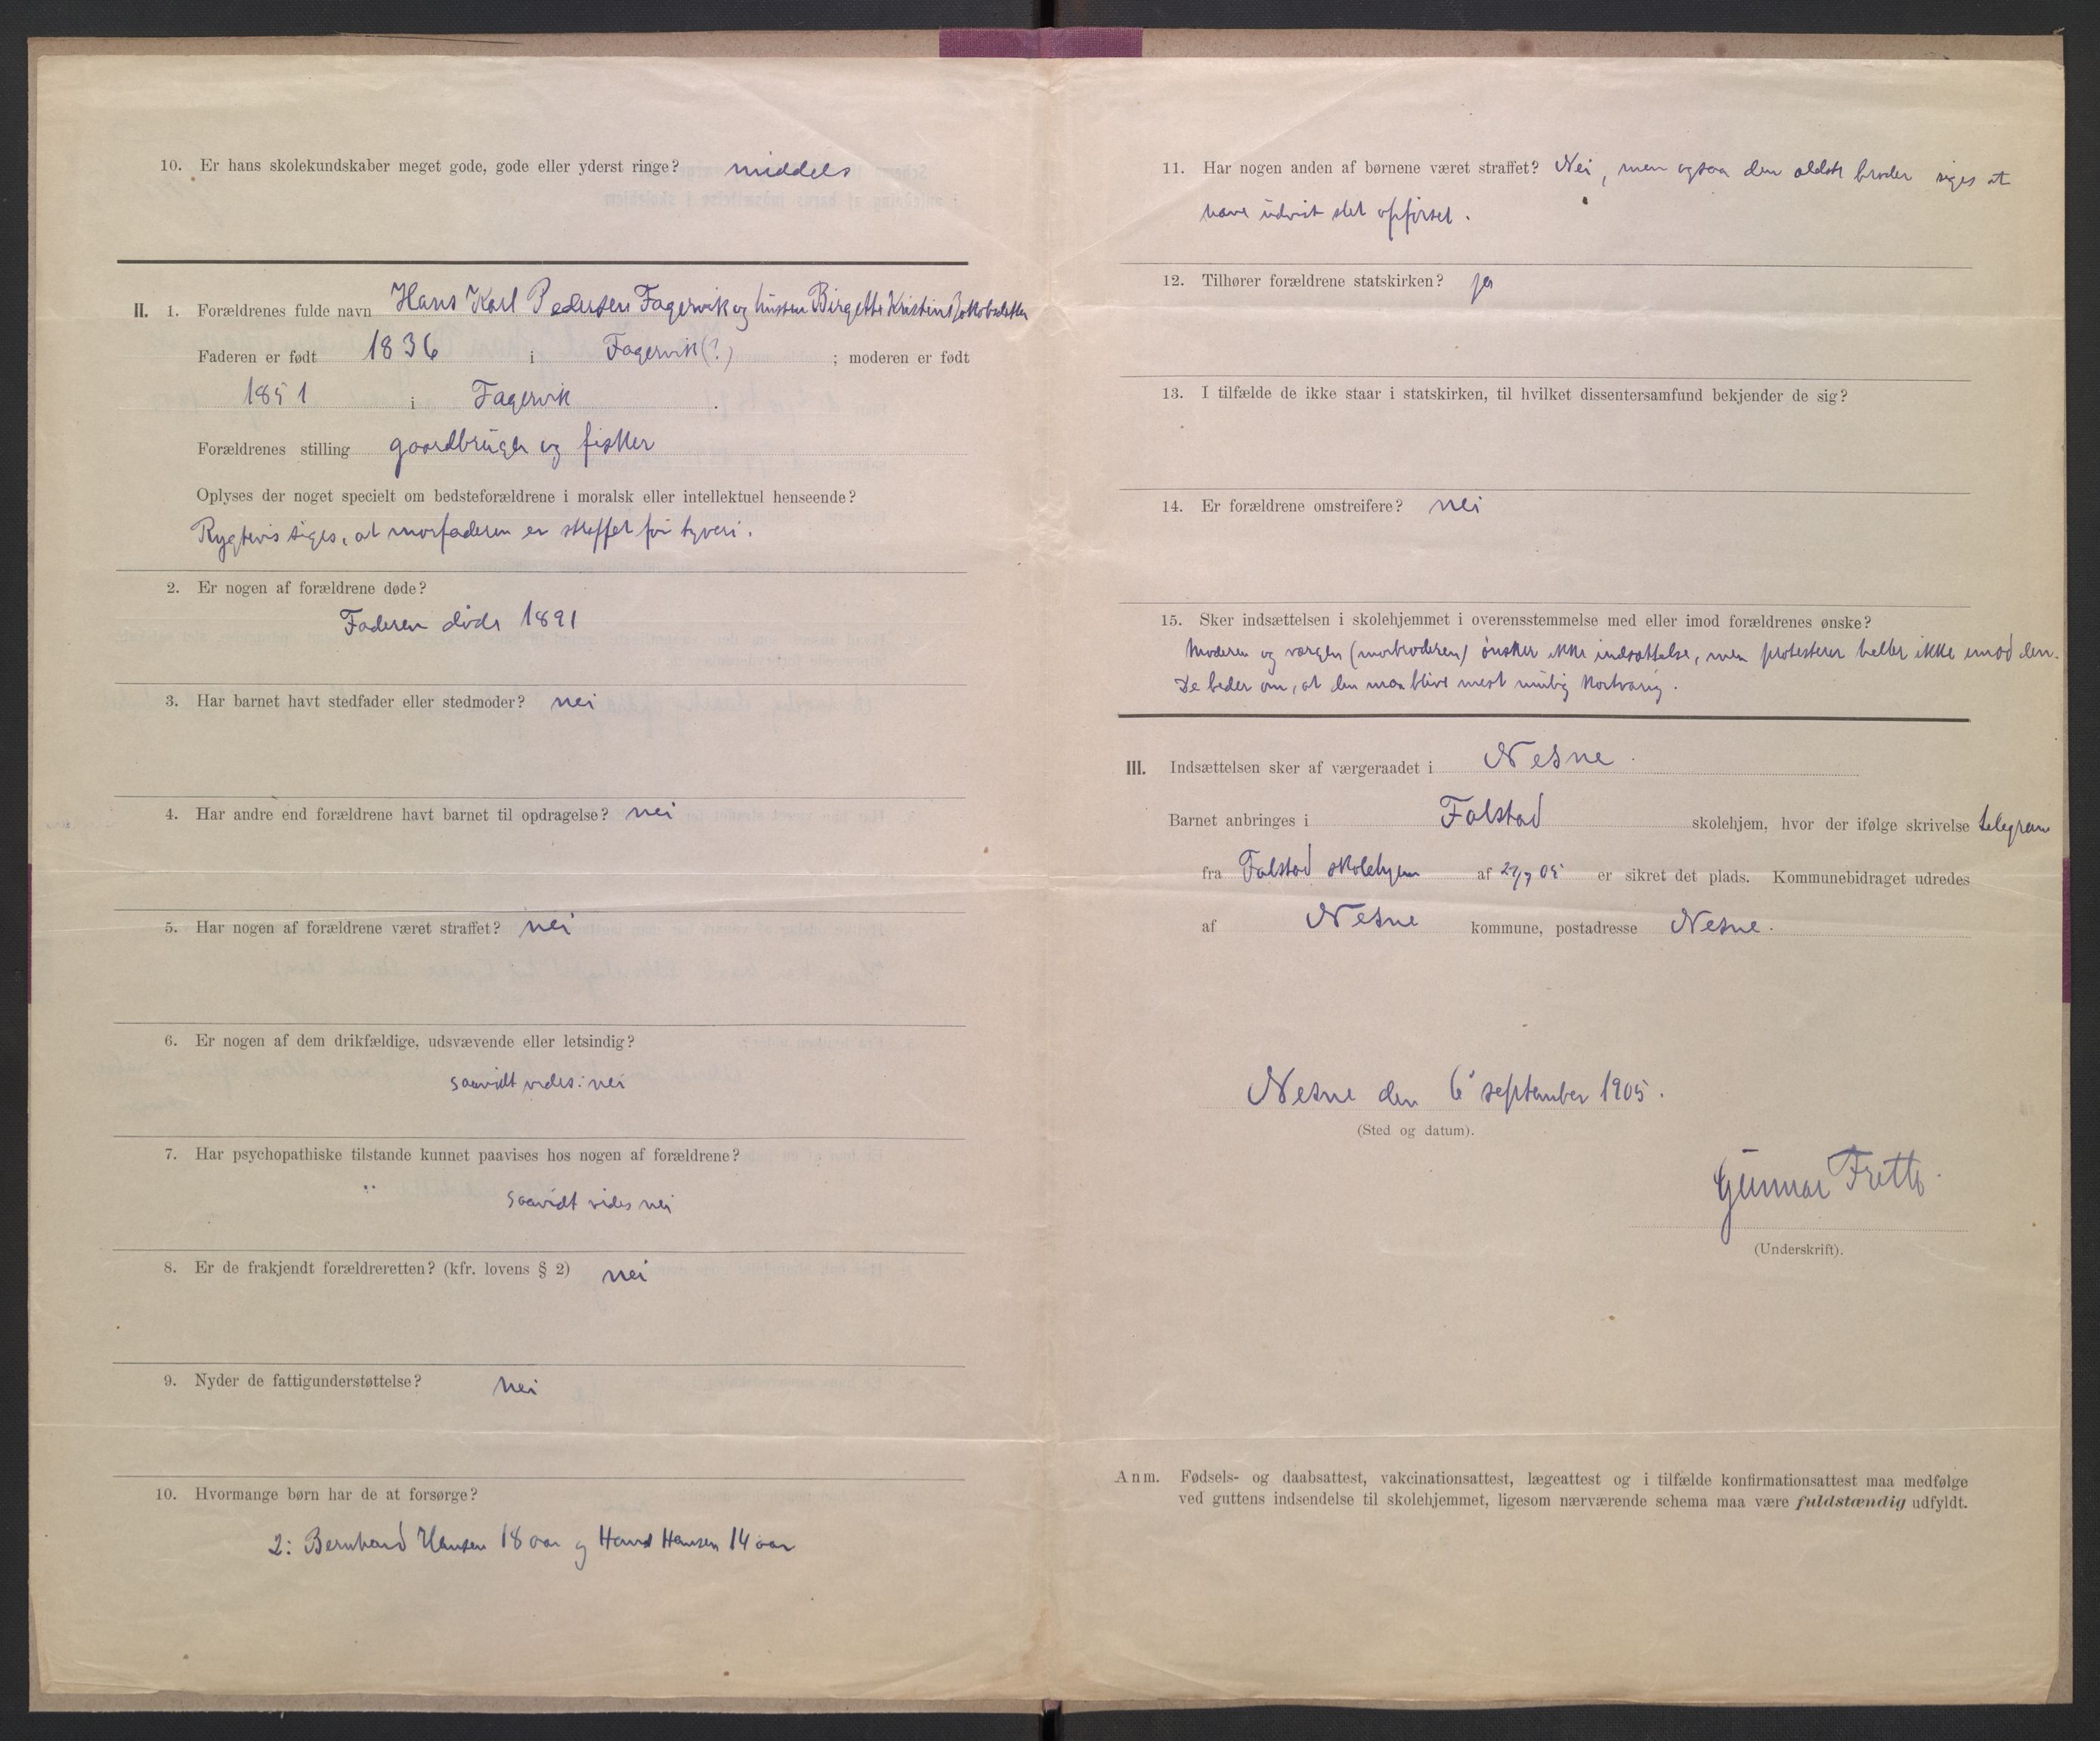 10. Er hans skolekundskaber meget gode, gode eller yderst ringe? middels
II. 1. Forældrenes fulde navn Hans Karl Pedersen Fagervik og hustru Birgette Kristine Jakobsdatter
Faderen er født 1836 i Fagervik (?) ; moderen er født
1851 i Fagervik .
Forældrenes stilling gaardbruger og fisker
Oplyses der noget specielt om bedsteforældrene i moralsk eller intellektuel henseende?
Rygtevis siges, at morfaderen er straffet for tyveri.
2. Er nogen af forældrene døde?
Faderen døde 1891
3. Har barnet havt stedfader eller stedmoder? nei
4. Har andre end forældrene havt barnet til opdragelse? nei
5. Har nogen af forældrene været straffet? nei
6. Er nogen af dem drikfældige, udsvævende eller letsindig?
saavidt vides: nei
7. Har psychopathiske tilstande kunnet paavises hos nogen af forældrene?
saavidt vides nei
8. Er de frakjendt forældreretten? (kfr. lovens § 2) nei
9. Nyder de fattigunderstøttelse? Nei
10. Hvormange børn har de at forsørge?
2: Bernhard Hansen 18 aar og Hans Hansen 14 aar
11. Har nogen anden af børnene været straffet? Nei, men ogsaa den ældste broder siges at
have udvist slet opførsel.
12. Tilhører forældrene statskirken? ja
13. I tilfælde de ikke staar i statskirken, til hvilket dissentersamfund bekjender de sig?
14. Er forældrene omstreifere? nei
15. Sker indsættelsen i skolehjemmet i overensstemmelse med eller imod forældrenes ønske?
Moderen og værgen (morbroderen) ønsker ikke indsættelse, men protesterer heller ikke imod den.
De beder om, at den maa blive mest mulig kortvarig.
III. Indsættelsen sker af værgeraadet i Nesne.
Barnet anbringes i Falstad skolehjem, hvor der ifølge skrivelse telegram
fra Falstad skolehjem af 05 er sikret det plads. Kommunebidraget udredes
af Nesne kommune, postadresse Nesne.
Nesne den 6 september 1905.
(Sted og datum).
Gunnar
(Underskrift).
Anm. Fødsels- og daabsattest, vakcinationsattest, lægeattest og i tilfælde konfirmationsattest maa medfølge
ved guttens indsendelse til skolehjemmet, ligesom nærværende schema maa være fuldstændig udfyldt.